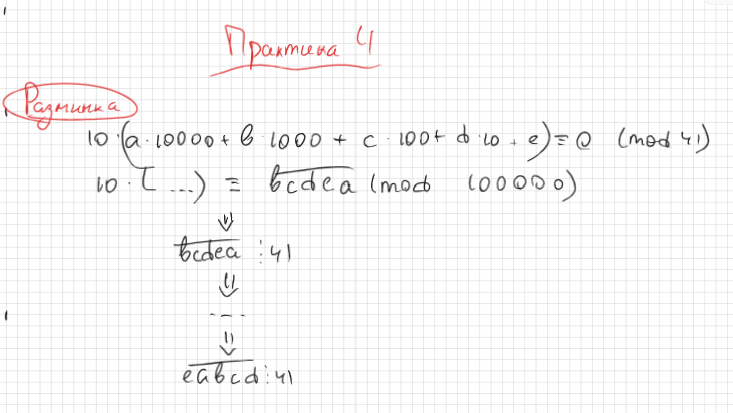 Практика 4
Разминка
10·(a·10000 + b·1000 + c·100 + d·10 + e) ≡ 0 (mod 41)
10·(...) ≡ \overline{bcdea} (mod 100000)
⇓
\overline{bcdea} ⋮ 41
⇓
...
⇓
\overline{eabcd} ⋮ 41